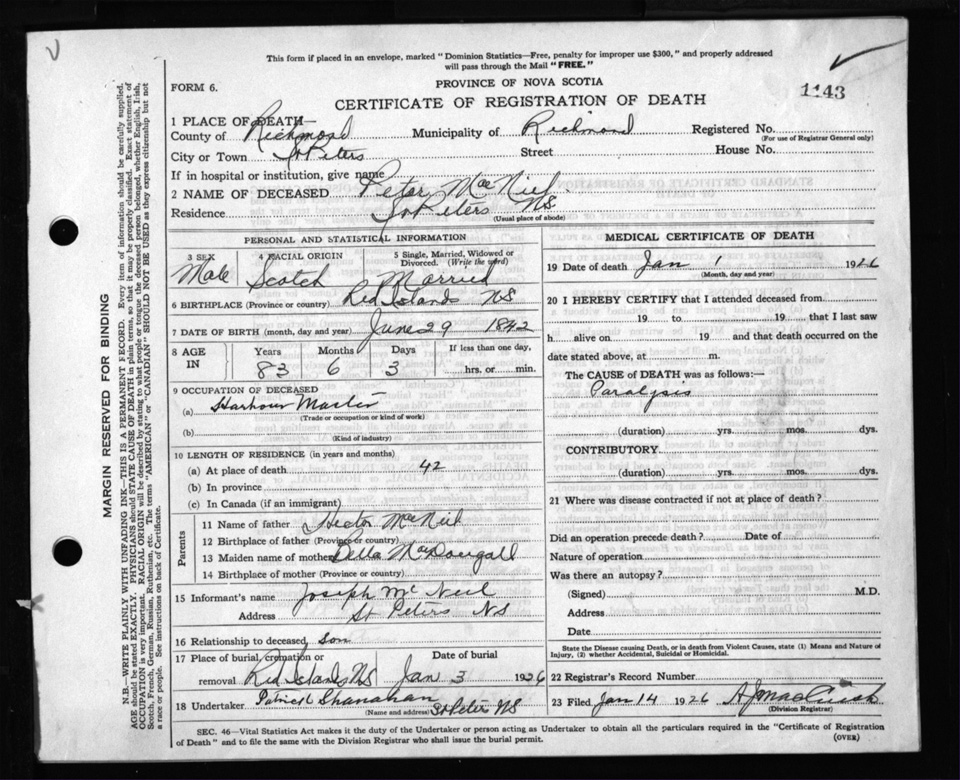 This form if placed in an envelope, marked "Dominion Statistics—Free, penalty for improper use $300," and properly addressed
will pass through the Mail "FREE."
FORM 6.
PROVINCE OF NOVA SCOTIA
1143
CERTIFICATE OF REGISTRATION OF DEATH
1 PLACE OF DEATH—
County of Richmond Municipality of Richmond Registered No.
(For use of Registrar General only)
City or Town St Peters Street House No.
If in hospital or institution, give name
2 NAME OF DECEASED Peter MacNeil
Residence St Peters NS
(Usual place of abode)
PERSONAL AND STATISTICAL INFORMATION
3 SEX 4 RACIAL ORIGIN 5 Single, Married, Widowed or
Divorced. (Write the word)
Male Scotch Married
6 BIRTHPLACE (Province or country) Red Islands NS
7 DATE OF BIRTH (month, day and year) June 29 1842
8 AGE IN Years Months Days If less than one day,
83 6 3 hrs. or min.
9 OCCUPATION OF DECEASED
(a) Harbour Master
(Trade or occupation or kind of work)
(b)
(Kind of industry)
10 LENGTH OF RESIDENCE (in years and months)
(a) At place of death 42
(b) In province
(c) In Canada (if an immigrant)
Parents
11 Name of father Hector MacNeil
12 Birthplace of father (Province or country)
13 Maiden name of mother Bella MacDougall
14 Birthplace of mother (Province or country)
15 Informant's name Joseph McNeil
Address St Peters NS
16 Relationship to deceased, son
17 Place of burial, cremation or Date of burial
removal Red Islands NS Jan 3 1926
18 Undertaker Patrick Shanahan
(Name and address) St Peters NS
MEDICAL CERTIFICATE OF DEATH
19 Date of death Jan 1 1926
(Month, day and year)
20 I HEREBY CERTIFY that I attended deceased from
19 to 19 that I last saw
h alive on 19 and that death occurred on the
date stated above, at m.
The CAUSE OF DEATH was as follows:—
Paralysis
(duration) yrs. mos. dys.
CONTRIBUTORY
(duration) yrs. mos. dys.
21 Where was disease contracted if not at place of death?
Did an operation precede death? Date of
Nature of operation
Was there an autopsy?
(Signed) M.D.
Address
Date
State the Disease causing Death, or in death from Violent Causes, state (1) Means and Nature of
Injury, (2) whether Accidental, Suicidal or Homicidal.
22 Registrar's Record Number
23 Filed Jan 14 1926
(Division Registrar)
SEC. 46—Vital Statistics Act makes it the duty of the Undertaker or person acting as Undertaker to obtain all the particulars required in the "Certificate of Registration
of Death" and to file the same with the Division Registrar who shall issue the burial permit.
(OVER)
MARGIN RESERVED FOR BINDING
N.B.—WRITE PLAINLY WITH UNFADING INK—THIS IS A PERMANENT RECORD. Every item of information should be carefully supplied.
AGE should be stated EXACTLY. PHYSICIANS should STATE CAUSE OF DEATH in plain terms, so that it may be properly classified. Exact statement of
OCCUPATION is very important. RACIAL ORIGIN will be described by stating to what people or tongue the deceased person belonged, whether English, Irish,
Scotch, French, German, Russian, Ruthenian, etc. The terms "AMERICAN" or "CANADIAN" SHOULD NOT BE USED as they express citizenship but not
a race or people. See instructions on back of Certificate.